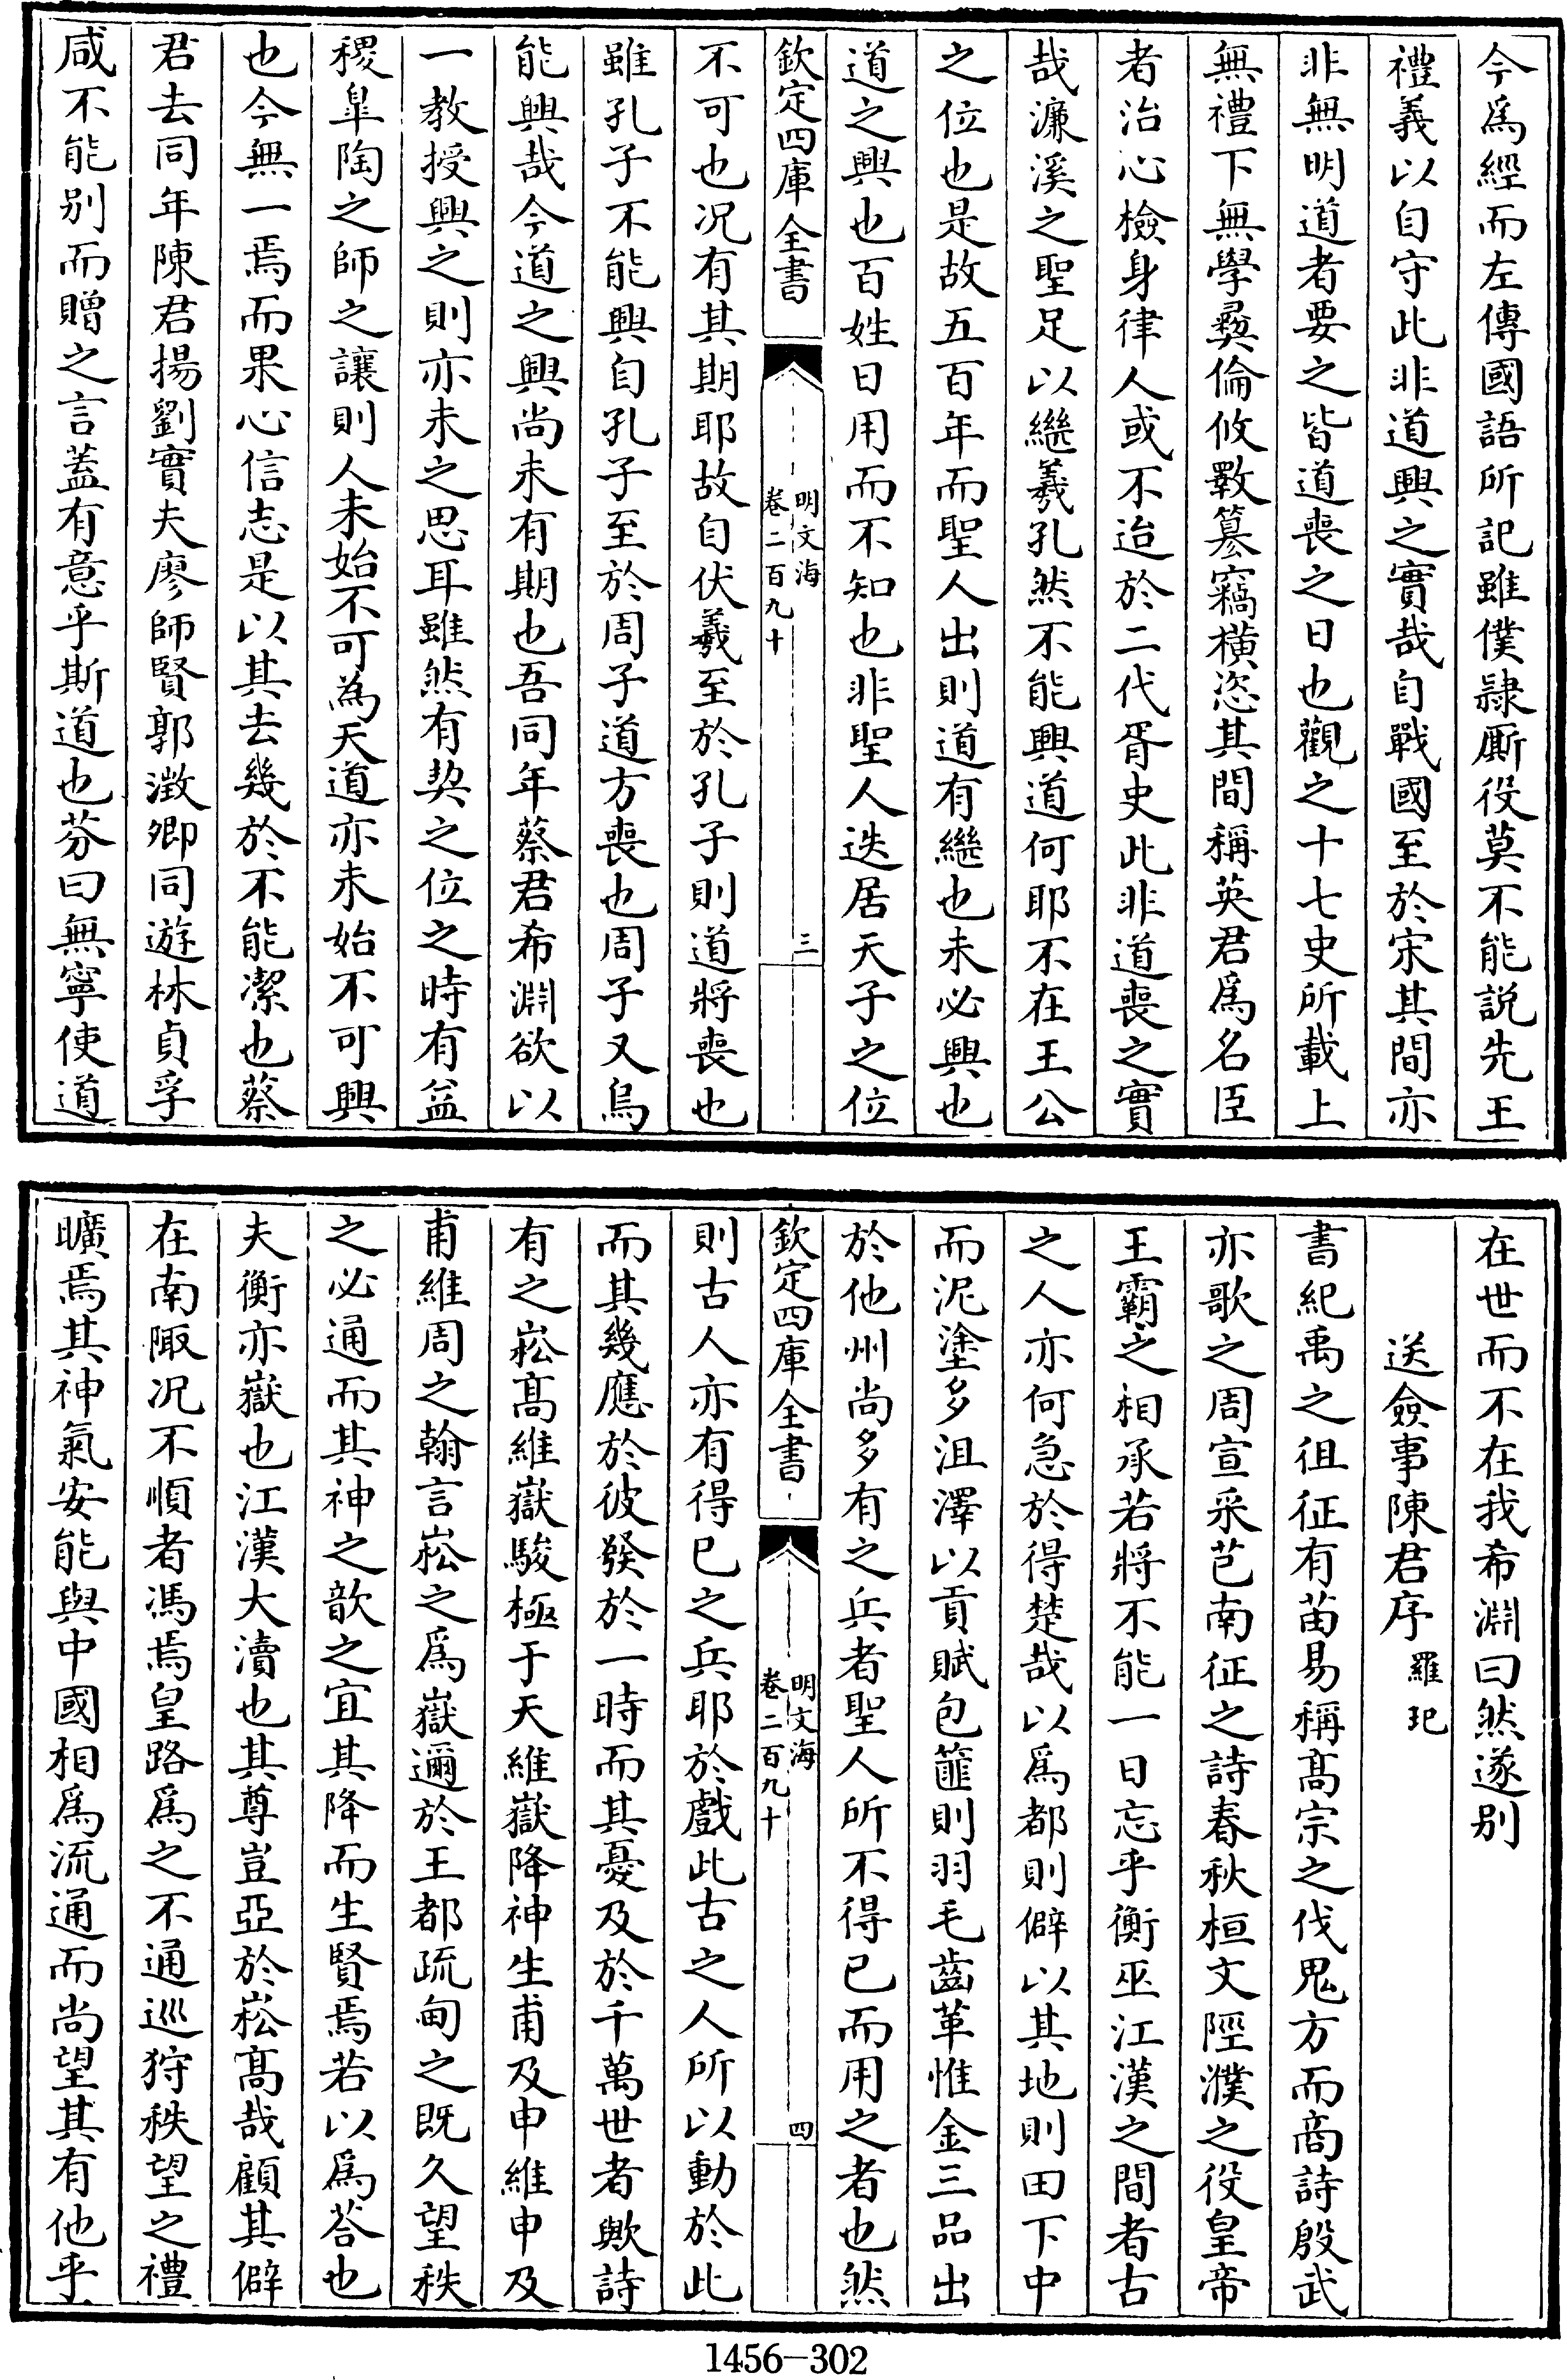 今爲經而左傳國語所記雖僕隸厮役莫不能説先王
禮義以自守此非道興之實哉自戰國至於宋其間亦
非無明道者要之皆道喪之日也觀之十七史所載上
無禮下無學彛倫攸斁簒竊横恣其間稱英君爲名臣
者治心檢身律人或不迨於二代胥史此非道喪之實
哉濂溪之聖足以繼羲孔然不能興道何耶不在王公
之位也是故五百年而聖人出則道有繼也未必興也
道之興也百姓日用而不知也非聖人迭居天子之位
欽定四庫全書
明文海
卷二百九十
三
不可也况有其期耶故自伏羲至於孔子則道將喪也
雖孔子不能興自孔子至於周子道方喪也周子又烏
能興哉今道之興尚未有期也吾同年蔡君希淵欲以
一教授興之則亦未之思耳雖然有契之位之時有益
稷臯陶之師之讓則人未始不可為天道亦未始不可興
也今無一焉而果心信志是以其去幾於不能潔也蔡
君去同年陳君揚劉實夫廖師賢郭澂卿同遊林貞孚
咸不能别而贈之言蓋有意乎斯道也芬曰無寧使道
在世而不在我希淵曰然遂别
送僉事陳君序 羅玘
書紀禹之徂征有苗易稱髙宗之伐鬼方而商詩殷武
亦歌之周宣采芑南征之詩春秋桓文陘濮之役皇帝
王霸之相承若將不能一日忘乎衡巫江漢之間者古
之人亦何急於得楚哉以爲都則僻以其地則田下中
而泥塗多沮澤以貢賦包篚則羽毛齒革惟金三品出
於他州尚多有之兵者聖人所不得已而用之者也然
欽定四庫全書
明文海
卷二百九十
四
則古人亦有得已之兵耶於戲此古之人所以動於此
而其幾應於彼發於一時而其憂及於千萬世者歟詩
有之崧髙維嶽駿極于天維嶽降神生甫及申維申及
甫維周之翰言崧之爲嶽邇於王都疏甸之既久望秩
之必通而其神之歆之宜其降而生賢焉若以爲荅也
夫衡亦嶽也江漢大瀆也其尊豈亞於崧髙哉顧其僻
在南陬况不順者馮焉皇路爲之不通巡狩秩望之禮
曠焉其神氣安能與中國相爲流通而尚望其有他乎
1456-302